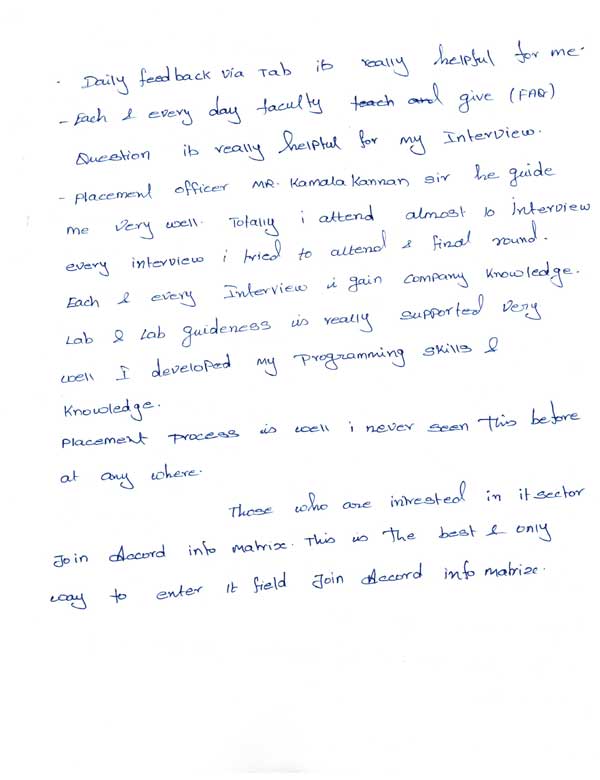 · Daily feedback via Tab it really helpful for me.
- Each & every day faculty teach and give (FAQ)
Question it really helpful for my Interview.
- Placement officer MR. Kamala Kannan sir he guide
me very well. Totally i attend almost 10 Interview
every interview i tried to attend & final round.
Each & every Interview i gain company knowledge.
Lab & Lab guideness is really supported very
well I developed my Programming skills &
Knowledge.
Placement Process is well i never seen this before
at any where.
Those who are intrested in it sector
Join Accord info matrix. This is the best & only
way to enter it field Join Accord info matrix.